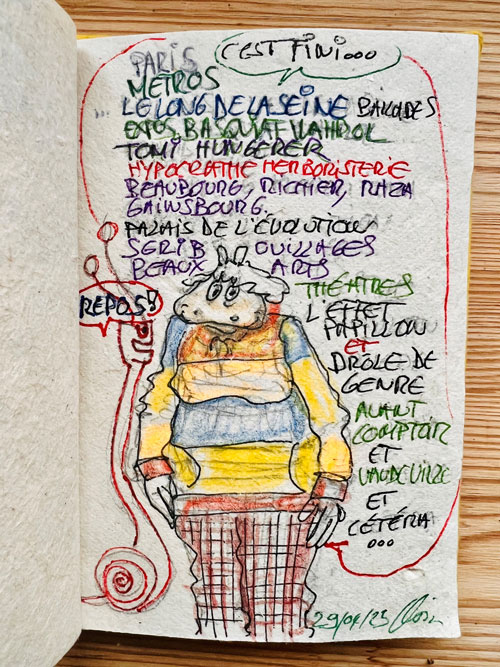 C'EST FINI...
PARIS
METROS
... LE LONG DE LA SEINE BALLADES
EXPOS BASQUIAT WARHOL
TOMI HUNGERER
HYPOCRATHE HERBORISTERIE
BEAUBOURG, RICHIER, RAZA
GAINSBOURG.
PALAIS DE L'ÉVOLUTION
SGRIB OUILLAGES
BEAUX ARTS
THÉATRES
REPOS!
L'EFFET
PAPILLON
ET
DRÔLE DE
GENRE
AVANT
COMPTOIR
ET
VAUDEVILLE
ET
CÉTÉRA
...
29/04/23